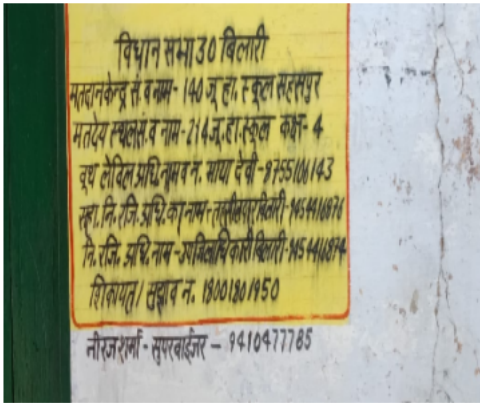 विधान सभा 30 बिलारी
मतदान केन्द्र सं. व नाम - 140 जू. हा. स्कूल सहसपुर
मतदेय स्थल सं. व नाम - 214 जू. हा. स्कूल कक्ष - 4
बूथ लेविल अधि. नाम व न. माया देवी - 8755106143
सहा. नि. रजि. अधि. का नाम - तहसीलदार बिलारी -
नि. रजि. अधि. नाम - उपजिलाधिकारी बिलारी - 9454416874
शिकायत / सुझाव न. 18001801950
नीरज शर्मा - सुपरवाईजर - 9410477785